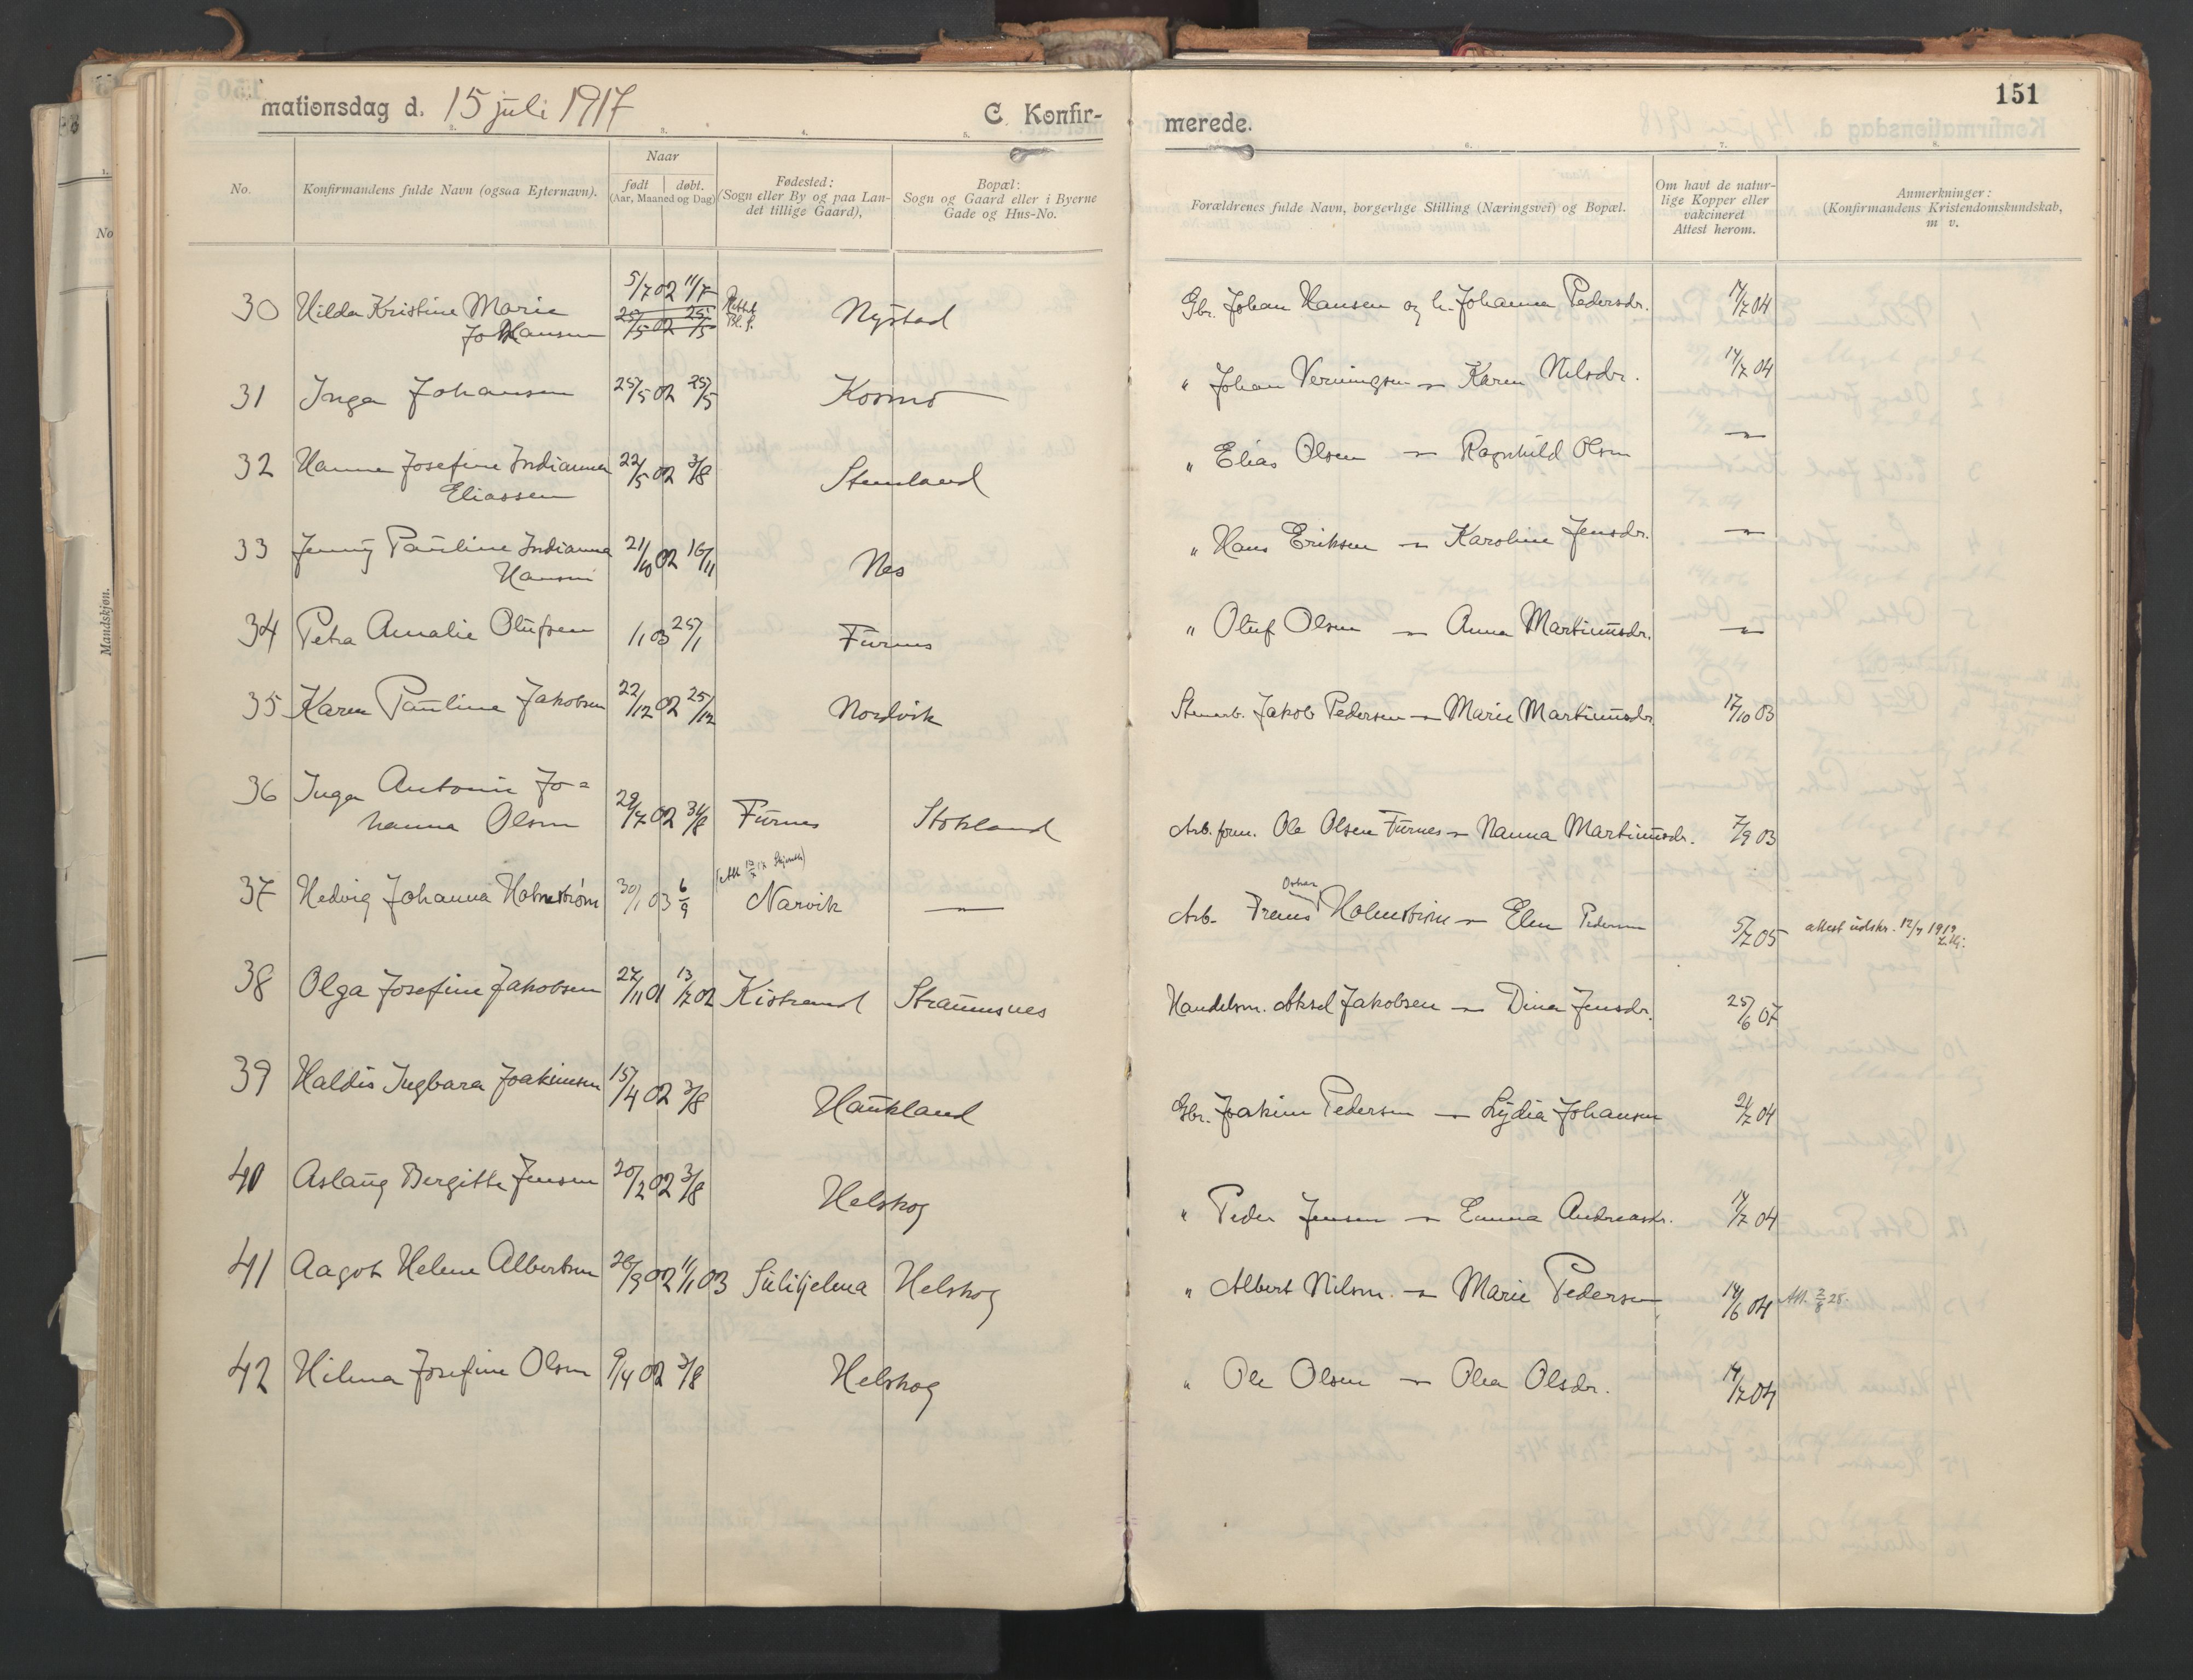 mationsdag d. 15 juli 1917
C. Konfir-
merede.
151
No.
Konfirmandens fulde Navn (ogsaa Efternavn).
Naar
født | døbt.
(Aar, Maaned og Dag)
Fødested:
(Sogn eller By og paa Lan-
det tillige Gaard),
Bopæl:
Sogn og Gaard eller i Byerne
Gade og Hus-No.
Forældrenes fulde Navn, borgerlige Stilling (Næringsvei) og Bopæl.
Om havt de natur-
lige Kopper eller
vakcineret
Attest herom.
Anmerkninger:
(Konfirmandens Kristendomskundskab,
m v.
No
Mandskjøn.
30 Hilda Kristine Marie 5/7 02 11/7 Nystad Gbr. Johan Hansen og h. Johanna Pedersdr. 14/7 04
Johansen 25/5 02 25/5
31 Inga Johansen 25/5 02 25/5 Kosmo " Johan Verningsen — Karen Nilsdr. 14/7 04
32 Hanna Josefine Indianna 22/5 02 3/8 Stemland " Elias Olsen — Ragnhild Olsen —
Eliassen
33 Jenny Pauline Indianna 21/10 02 16/11 Nes " Hans Eriksen — Karoline Jensdr. —
Hansen
34 Petra Amalie Olufsen 1/1 03 25/1 Furnes " Oluf Olsen — Anna Martinusdr. —
35 Karen Pauline Jakobsen 22/12 02 25/12 Nordvik Stenarb. Jakob Pedersen — Marie Martinusdr. 17/10 03
36 Inga Antonie Jo=
hanna Olsen 29/7 02 31/8 Furnes Stokland Arb.form. Ole Olsen Furnes — Nanna Martinusdr. 7/9 03
37 Hedvig Johanna Holmstrøm 30/1 03 6/9 Narvik — Arb. Frans Oskar Holmstrøm — Elen Pedersen 5/7 05 attest udskr. 12/7 1919
38 Olga Josefine Jakobsen 27/11 01 13/7 02 Kistrand Straumsnes Handelsm. Aksel Jakobsen — Dina Jensdr. 25/6 07
39 Haldis Ingbara Joakimsen 15/4 02 3/8 Haukland Gbr. Joakim Pedersen — Lydia Johansen 21/7 04
40 Aslaug Bergitte Jensen 20/2 02 3/8 Helskog " Peder Jensen — Emma Andreasdr. 14/7 04
41 Aagot Helene Albertsen 26/9 02 11/1 03 Sulitjelma Helskog " Albert Nilsen — Marie Pedersen 14/6 04 Att. 2/8 28.
42 Hilma Josefine Olsen 9/4 02 3/8 Helskog " Ole Olsen — Olea Olsdr. 14/7 04